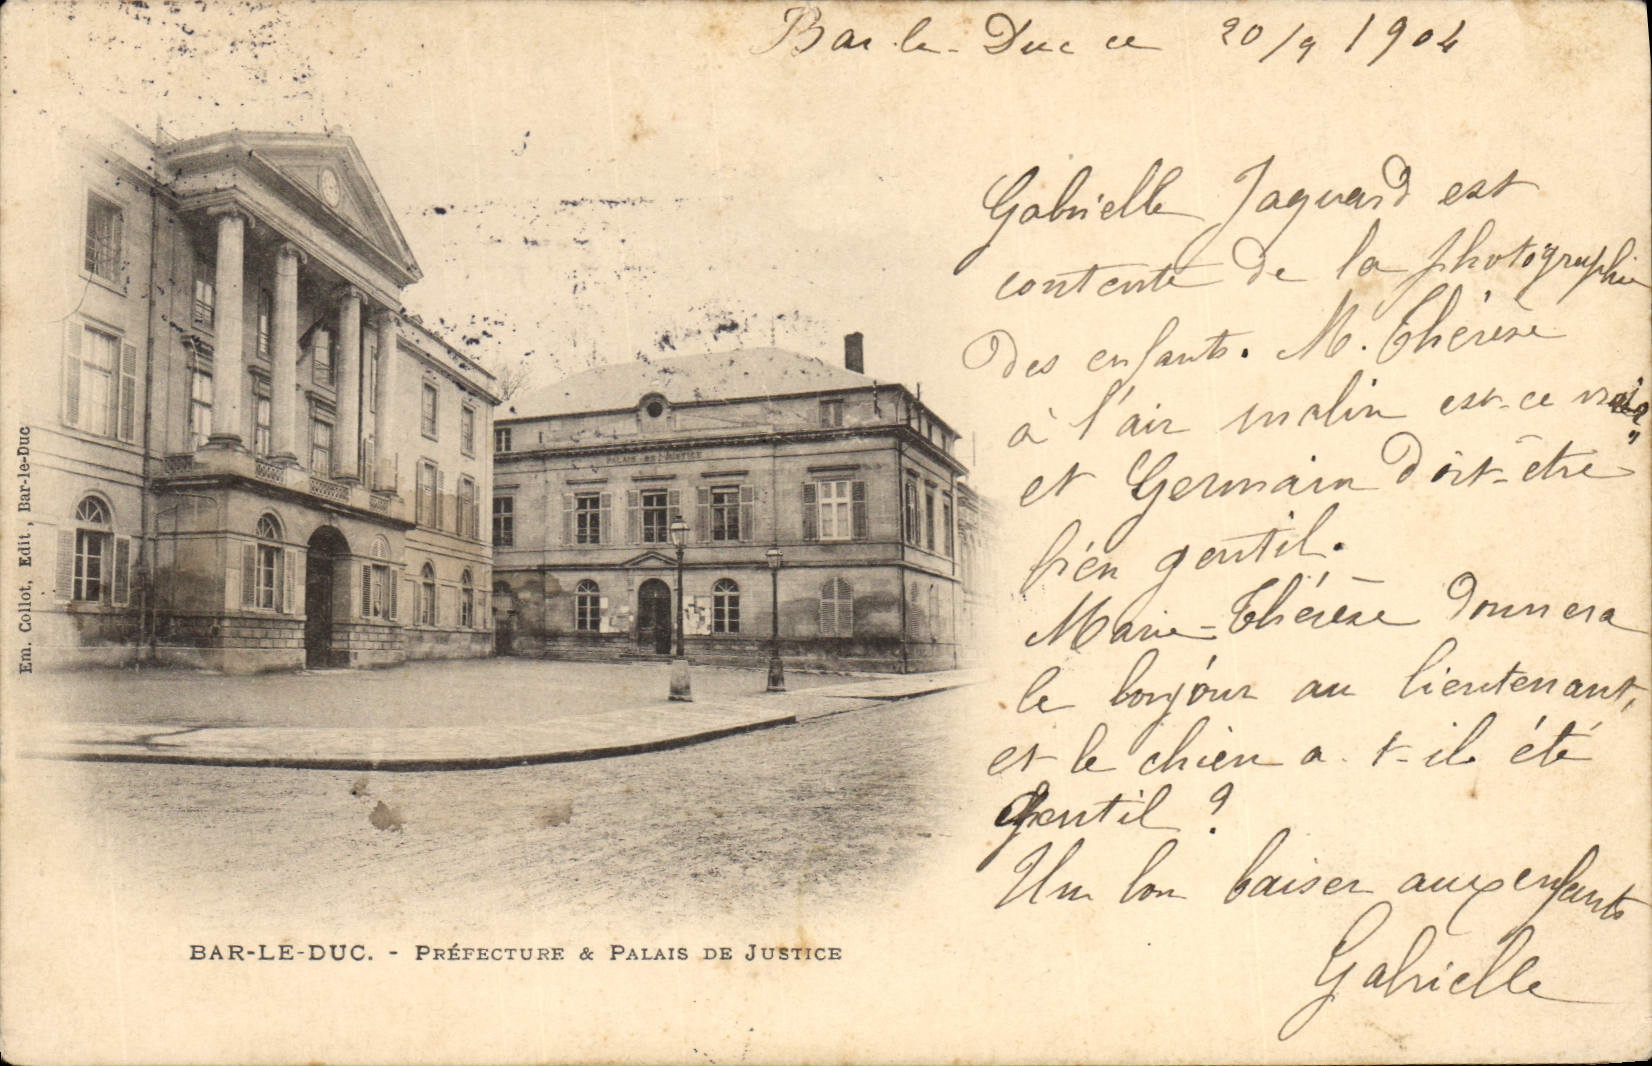 Bar-le-Duc ce 20/9 1904
Gabrielle Jaquard est
contente de la photographie
des enfants. M. Thérèse
à l'air malin est-ce vrai
et Germain doit-être
bien gentil.
Marie-Thérèse donnera
le bonjour au lieutenant,
et le chien a-t-il été
gentil ?
Un bon baiser aux enfants
Gabrielle
PALAIS DE JUSTICE
Em. Collot, Edit, Bar-le-Duc
BAR-LE-DUC. - PRÉFECTURE & PALAIS DE JUSTICE